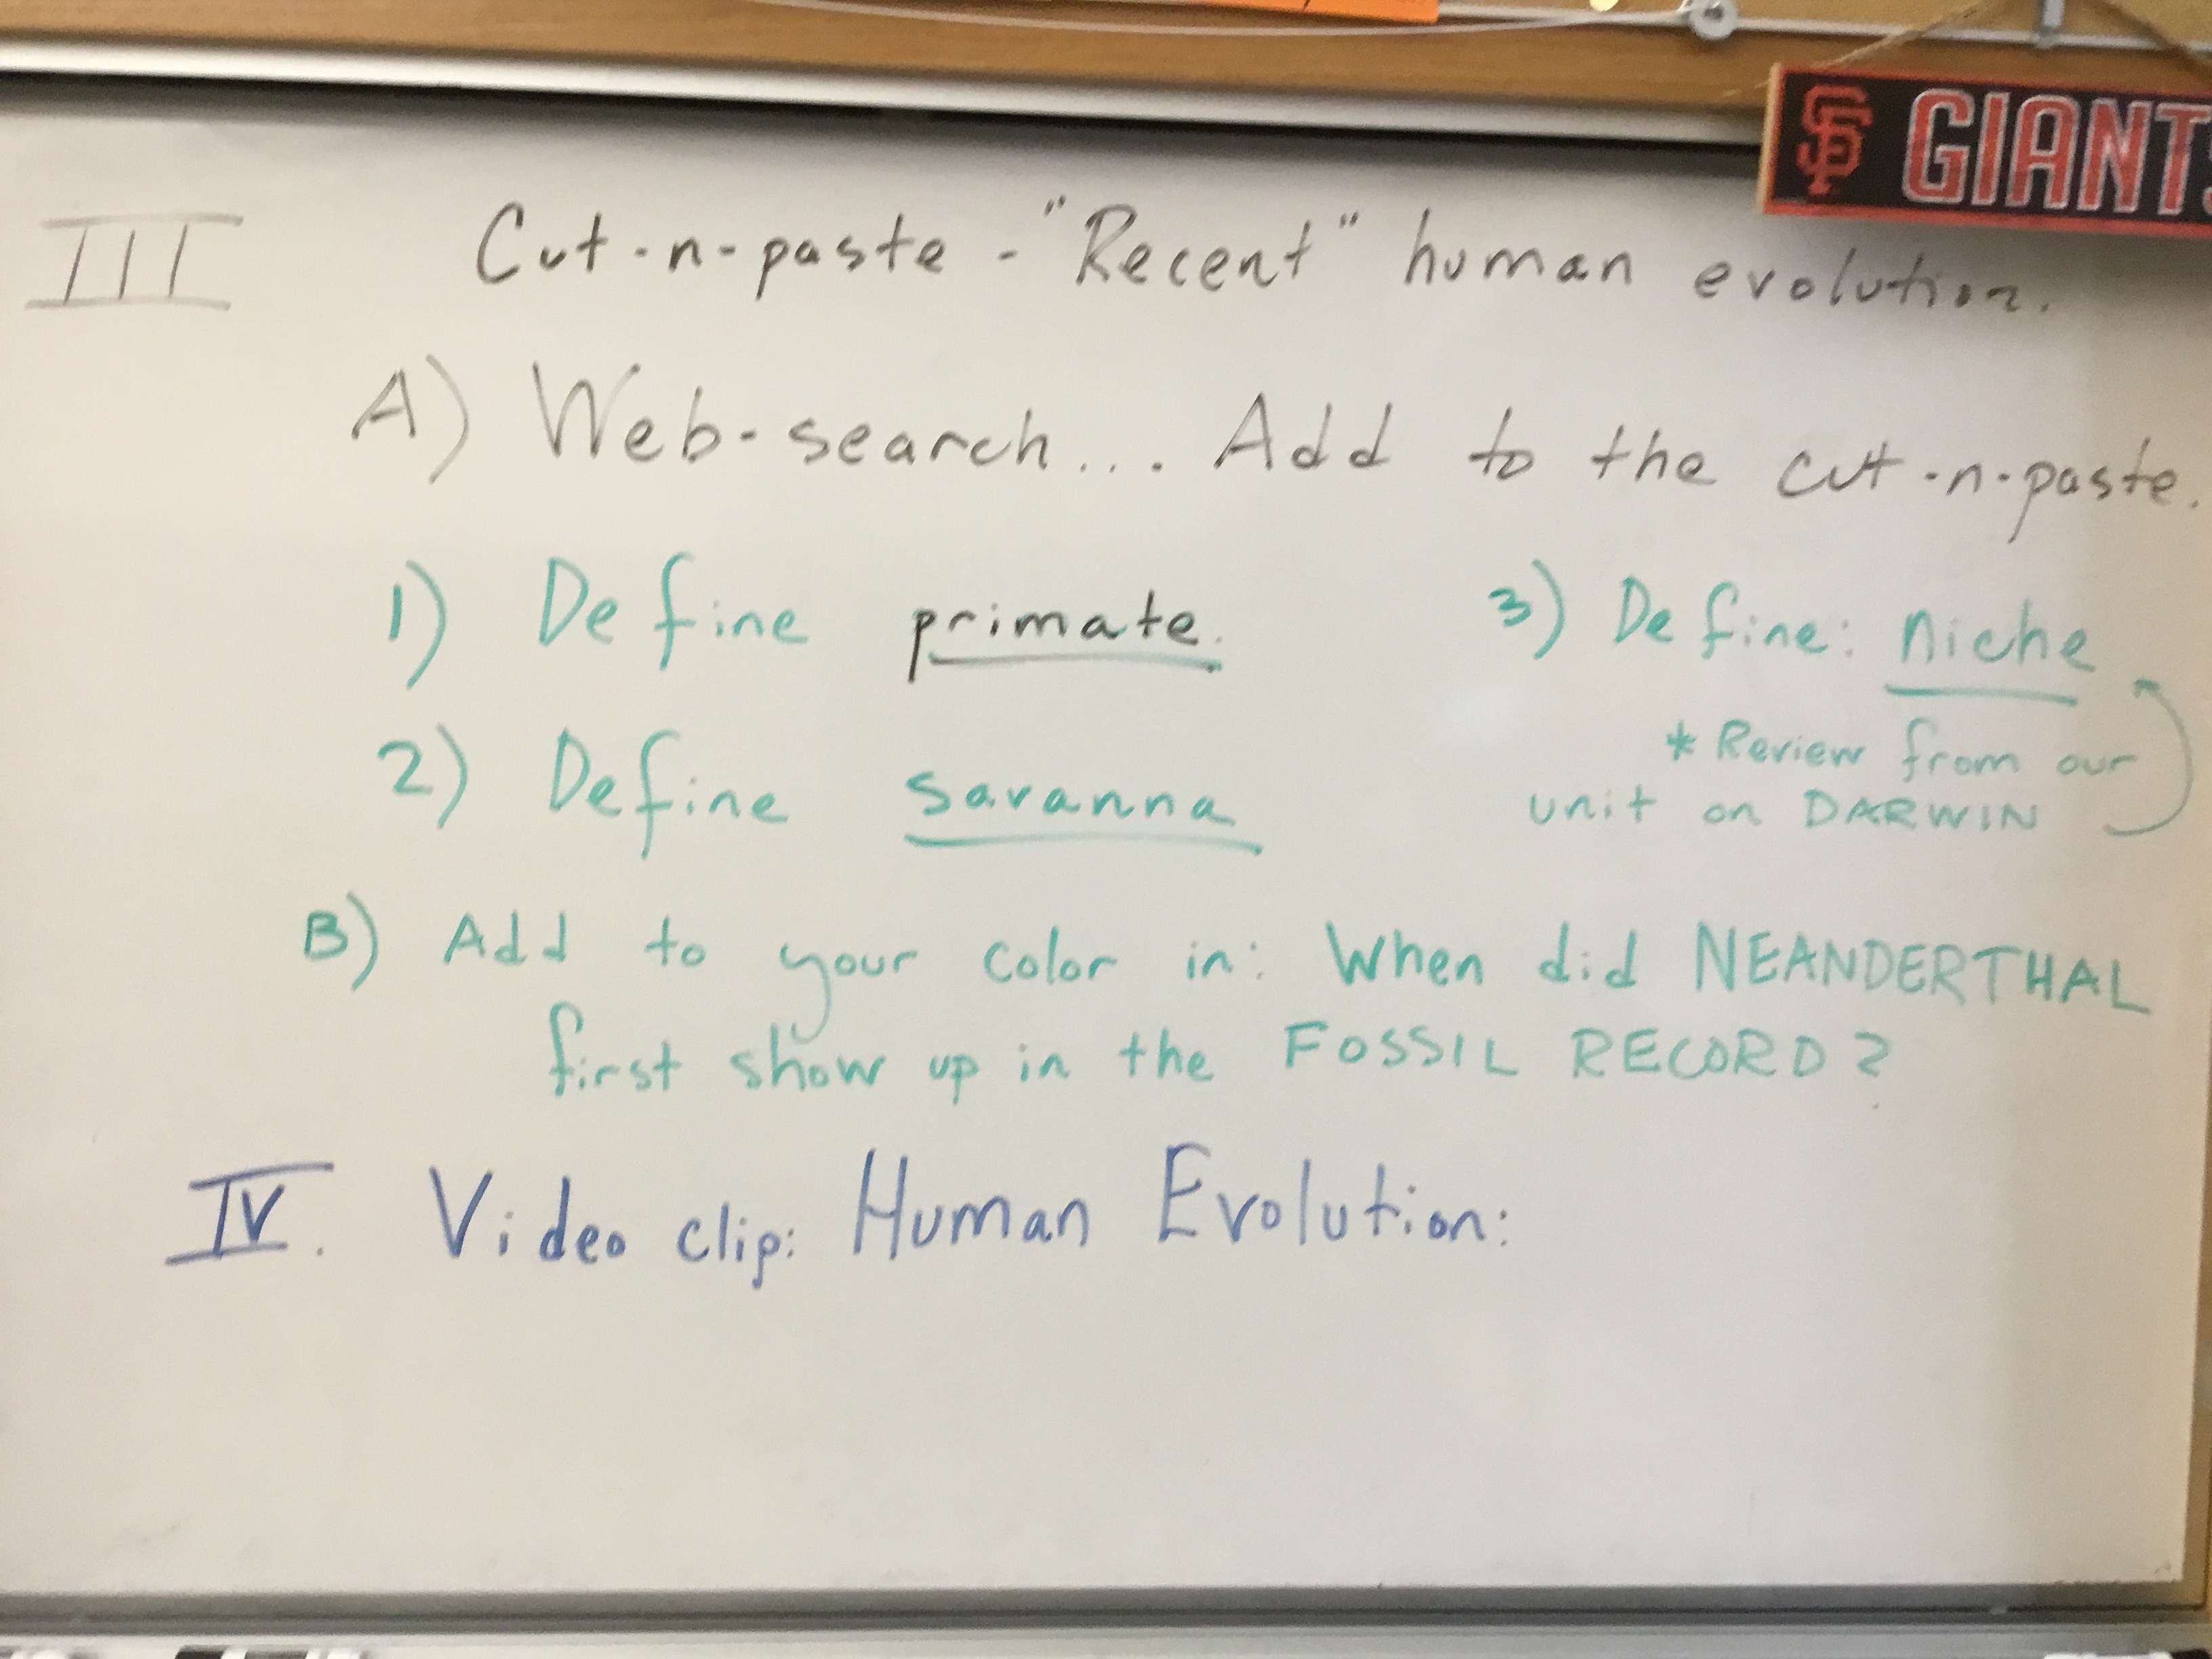 SF GIANTS
III Cut-n-paste - "Recent" human evolution.
A) Web-search... Add to the cut-n-paste.
1) Define primate.
2) Define savanna
3) Define: niche
* Review from our
unit on DARWIN
B) Add to your color in: When did NEANDERTHAL
first show up in the FOSSIL RECORD?
IV. Video clip: Human Evolution: